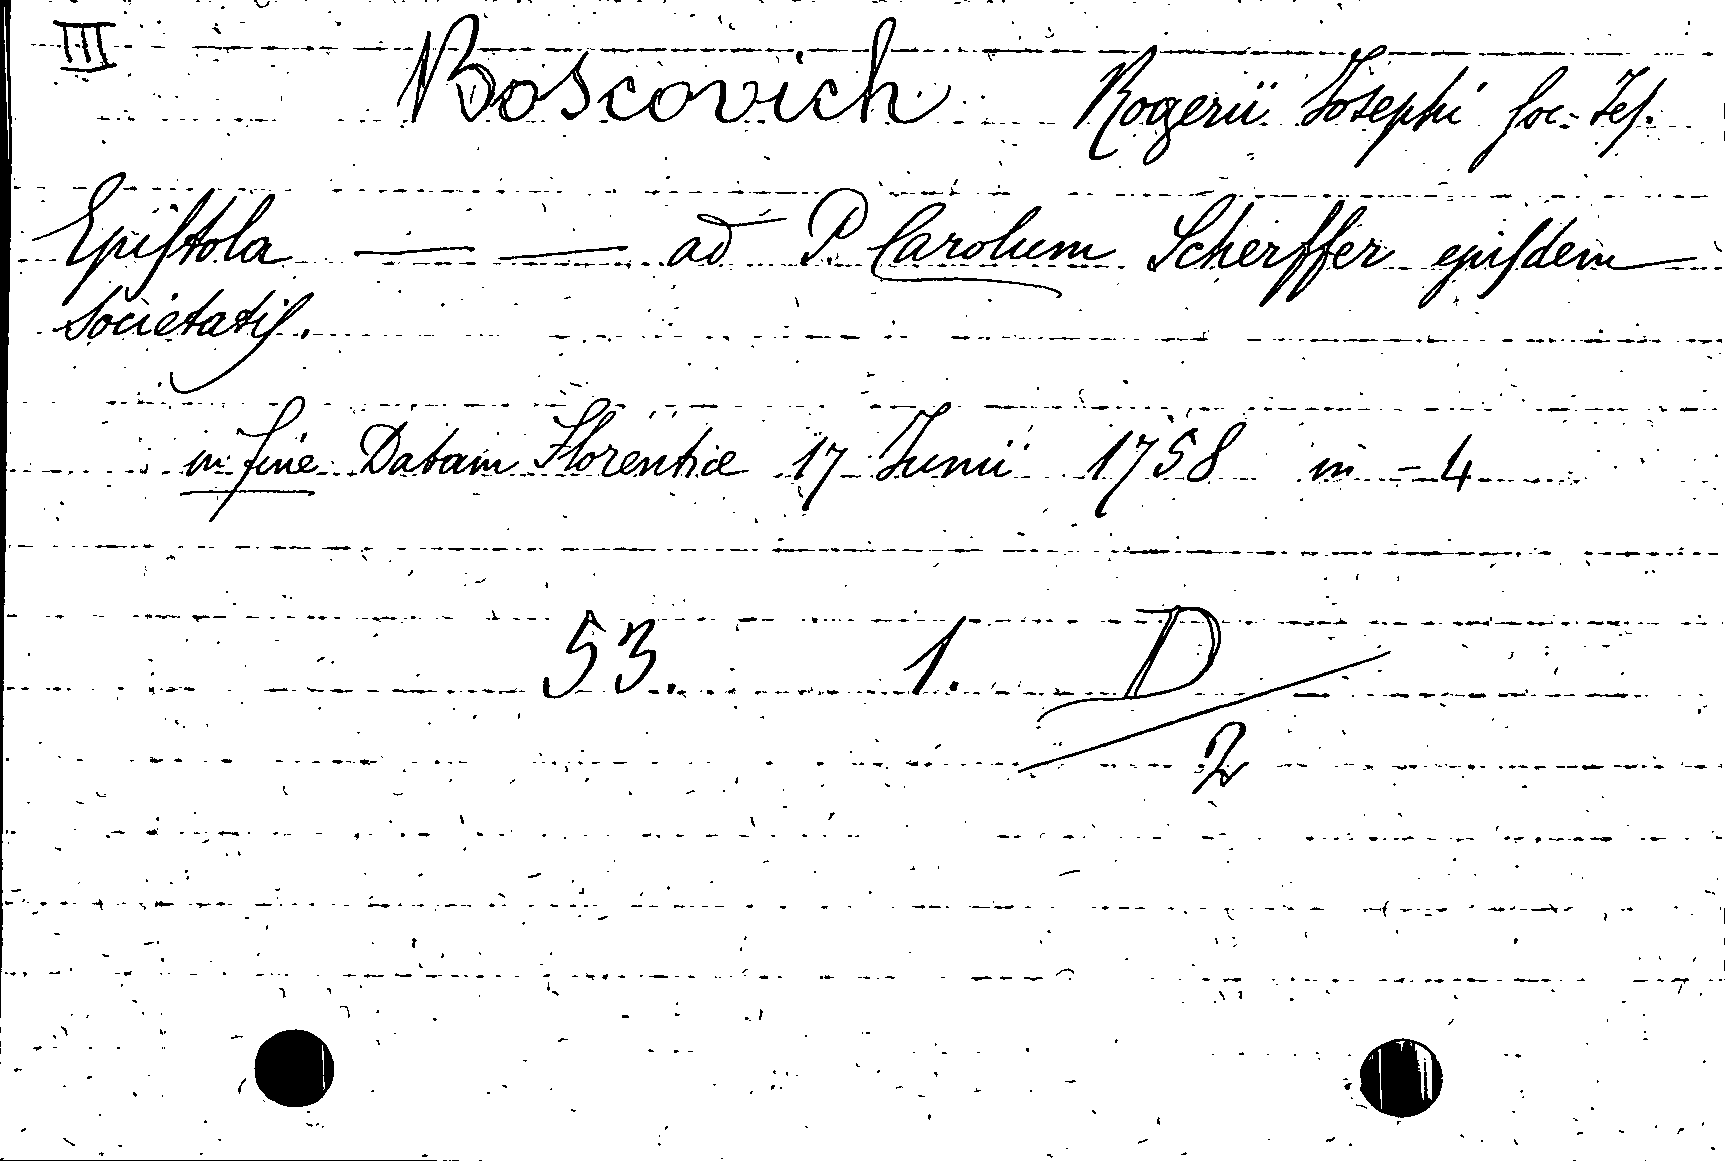 III
Boscovich Rogerii Josephi Soc: Jeſ.
Epiſtola — — ad P. Carolum Scherffer ejuſdem
Societatiſ.
in fine Datam Florentiæ 17 Junii 1758 in - 4
53. 1. D
2